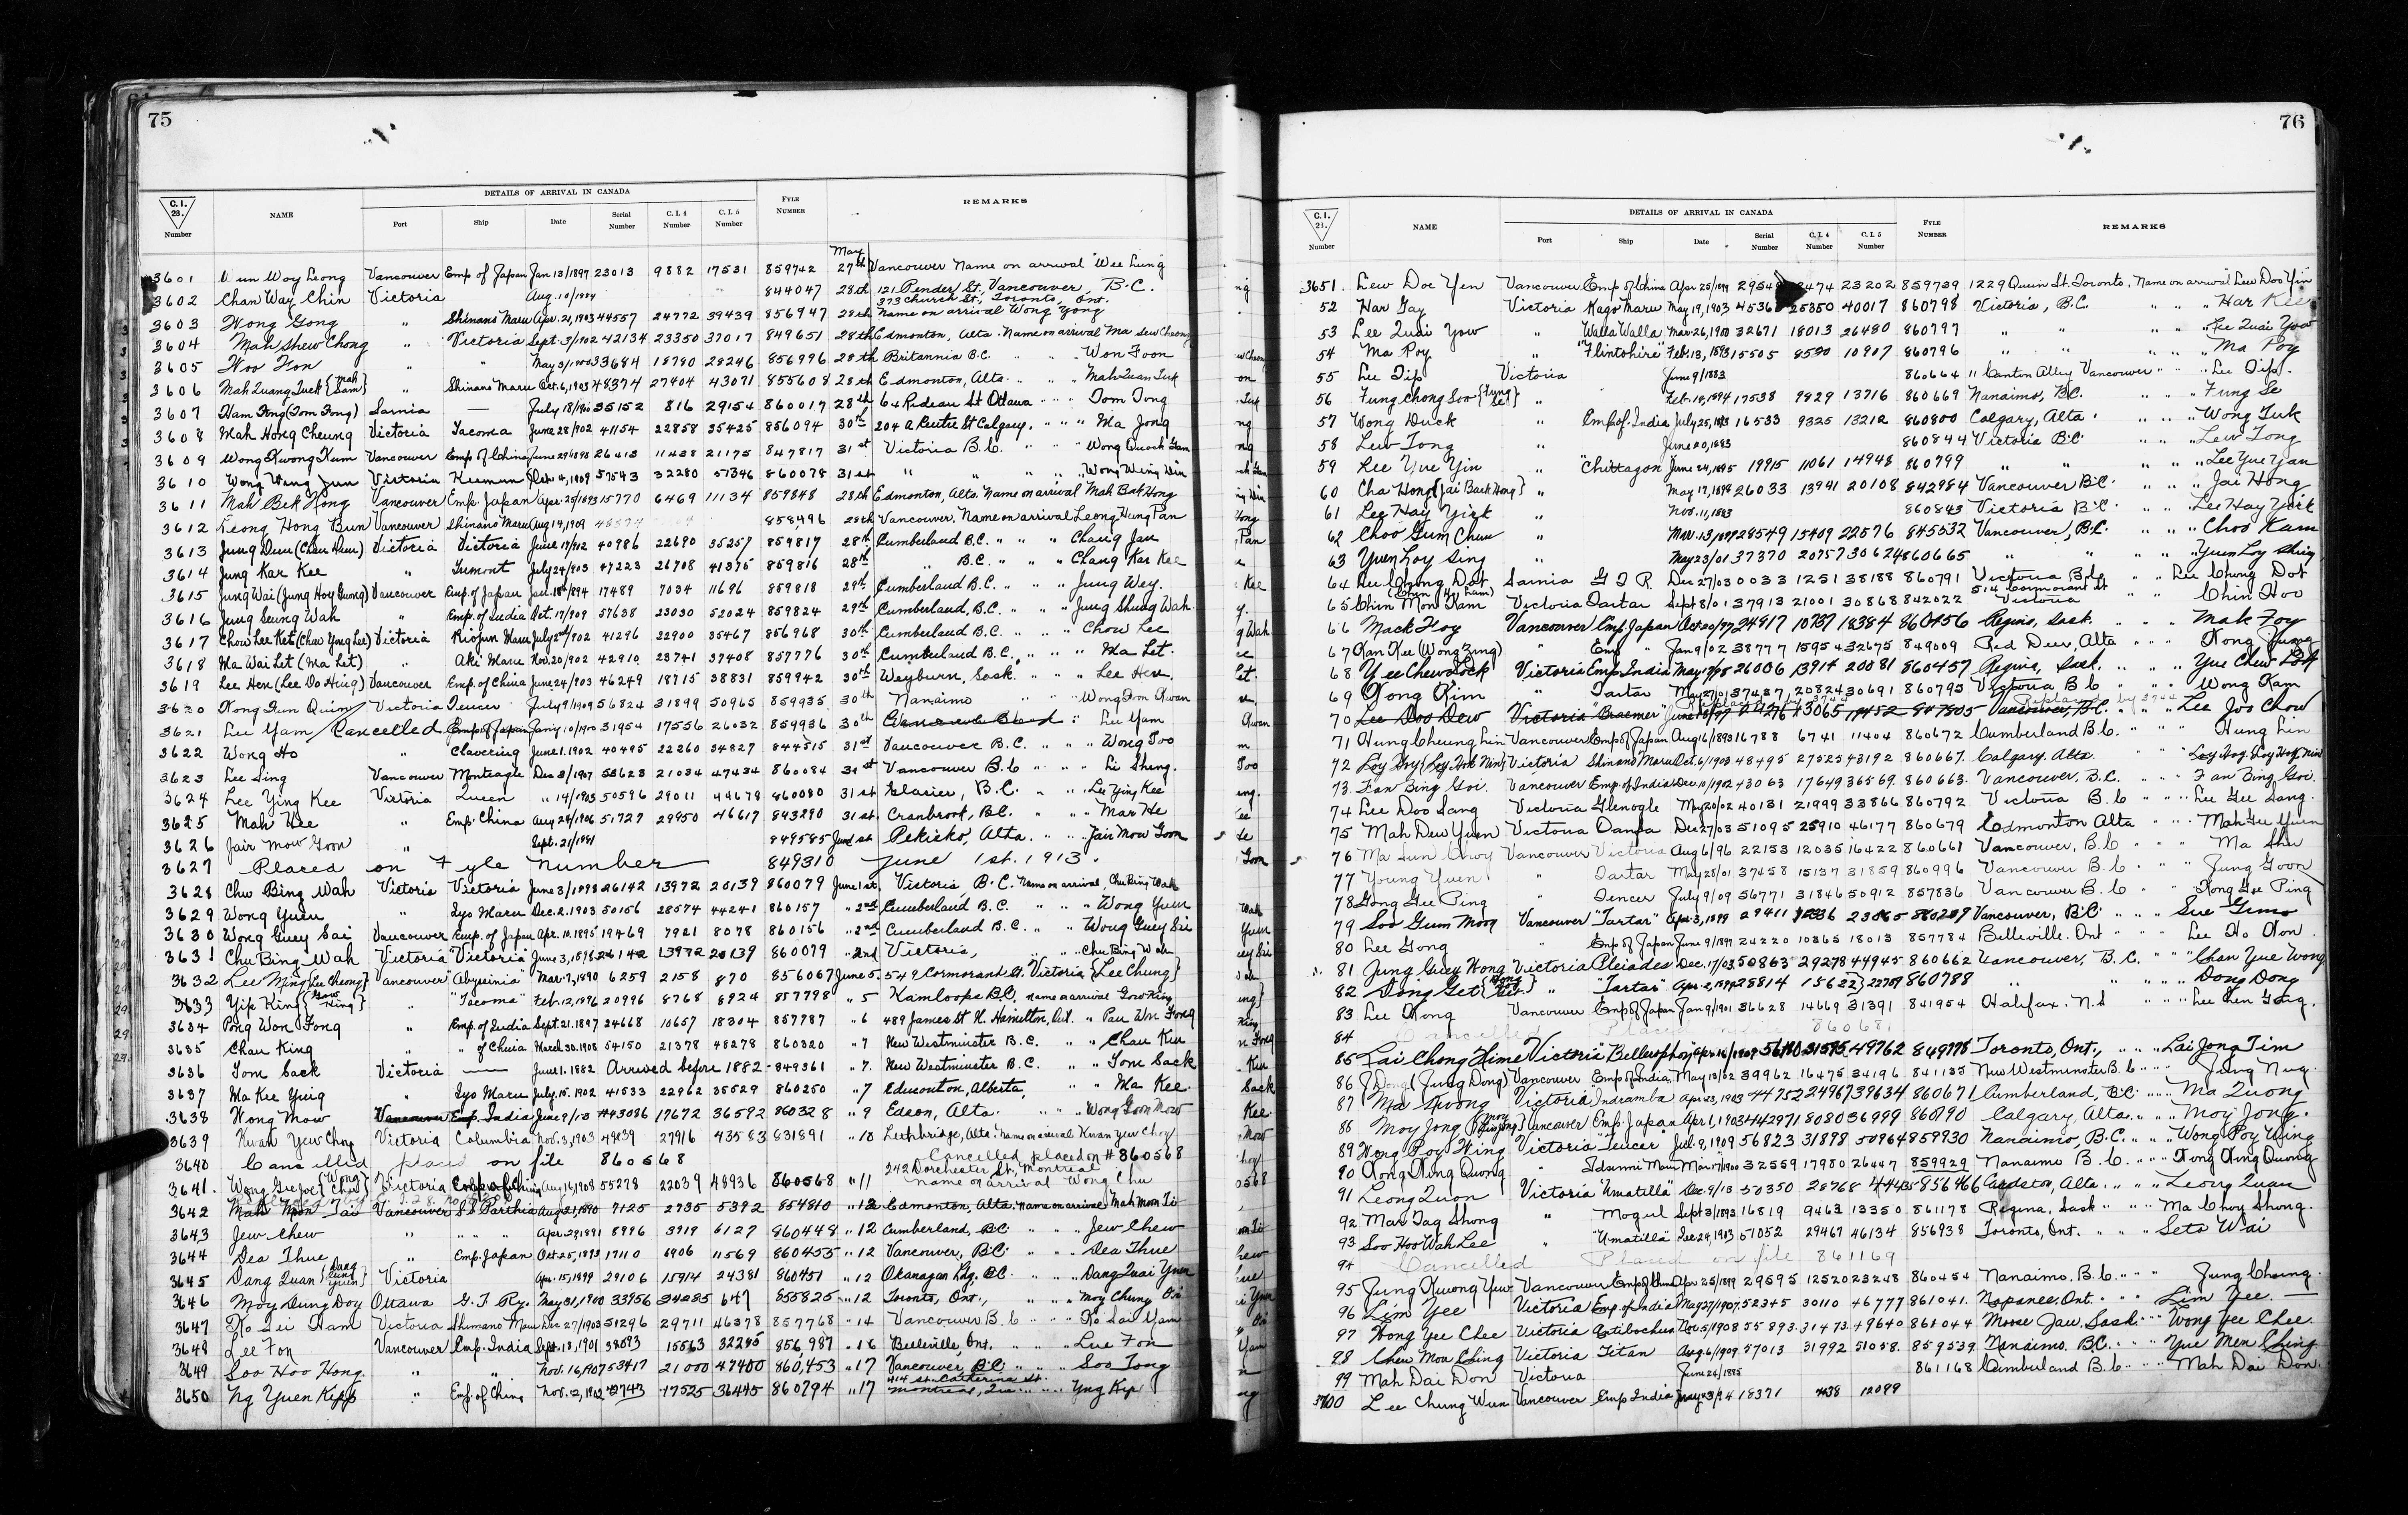 75
DETAILS OF ARRIVAL IN CANADA
C.I. 28. Number NAME Port Ship Date Serial Number C.I.4 Number C.I.5 Number FYLE NUMBER REMARKS
May
3601 Vancouver Emp of Japan Jan 13/1897 23013 9882 17531 859742 27th Vancouver Name on arrival Wee Lung
3602 Chan Way Chin Victoria Aug. 10/1884 844047 28th 121 Pender St, Vancouver, B.C.
373 Church St., Toronto, Ont.
3603 Wong Gong " Shinano Maru Apr. 21, 1903 44557 24772 39439 856947 28th Name on arrival Wong Yong
3604 Mah Shew Chong " Victoria Sept. 3/1902 42134 23350 37017 849651 28th Edmonton, Alta. Name on arrival Ma Sew Cheong
3605 Woo Hon " " May 3/1900 33684 18780 28246 856996 28th Britannia B.C. " " Won Foon
3606 Mah Quang Tuck {Mah Sam} " Shinano Maru Oct. 6, 1903 48374 27404 43071 855608 28th Edmonton, Alta. " " Mah Quan Tuk
3607 Ham Fong (Tom Fong) Sarnia — July 18/1900 35152 816 29154 860017 28th 64 Rideau St Ottawa " " Tom Tong
3608 Mah Hong Cheung Victoria Tacoma June 28/902 41154 22858 35425 856094 30th 204 A Centre St Calgary. " " Ma Jong
3609 Wong Kwong Kum Vancouver Emp of China June 29/1898 26413 11438 21175 847817 31st Victoria B.C. " Wong Quock Gam
3610 Wong Wing Jun Victoria Keemun Oct. 14, 1909 57543 32280 57346 860078 31st " " " Wong Wing Win
3611 Mah Bek Hong Vancouver Emp Japan Apr. 25/1893 15770 6469 11134 859848 28th Edmonton, Alta. Name on arrival Mah Bak Hong
3612 Leong Hong Bun Vancouver Shinano Maru Aug 14, 1909 858496 28th Vancouver. Name on arrival Leong Hung Pan
3613 Jung Deu (Chau Heu) Victoria Victoria June 17/02 40986 22690 35257 859817 28th Cumberland B.C. " " Chang Jau
3614 Jung Kar Kee " Tremont July 24/903 47223 26708 41375 859816 28th " B.C. " " Chang Kar Kee
3615 Jung Wai (Jung Hoy Guong) Vancouver Emp. of Japan Jan. 18th/894 17489 7034 11696 859818 29th Cumberland B.C. " " Jung Wey.
3616 Jung Seung Wah " Emp. of India Oct. 17/909 57638 23030 52024 859824 29th Cumberland, B.C. " " Jung Shung Wah
3617 Chow Lee Ket (Chow Yong Lee) Victoria Riojun Maru July 2nd/902 41296 22900 35467 856968 30th Cumberland B.C. " " Chow Lee
3618 Ma Wai Let (Ma Let) " Aki Maru Nov. 20/902 42910 23741 37408 857776 30th Cumberland B.C. " " Ma Let.
3619 Lee Hen (Lee Do Hing) Vancouver Emp. of China June 24/903 46249 18715 38831 859942 30th Weyburn, Sask. " " Lee Hen
3620 Wong Fun Quim Victoria Teucer July 9/1909 56824 31899 50965 859935 30th Nanaimo " " Wong Fon Qwan
3621 Lee Yam / Cancelled Emp of Japan Jan'y 10/1900 31954 17556 26032 859936 30th " Lee Yam
3622 Wong Ho " Clavering June 1. 1902 40495 22260 34827 844515 31st Vancouver B.C. " " Wong Too
3623 Lee Sing Vancouver Monteagle Dec 3/1907 53623 21034 47434 860084 31st Vancouver B.C " " Li Shing.
3624 Lee Ying Kee Victoria Queen " 14/1903 50596 29011 44678 860080 31st Glacier, B.C. " " Lee Ying Kee
3625 Mah Hee " Emp. China Aug 28/1906 51727 29950 46617 843290 31st Cranbrook, B.C. " " Mar He
3626 Jair Mow Goon " Sept. 21/1891 849585 June 1st Pekisko, Alta. " " Jair Mow Goon
3627 Placed on Fyle Number 849310 June 1st. 1913.
3628 Chu Bing Wah Victoria Victoria June 3/1898 26142 13972 20139 860079 June 1st. Victoria B.C. Name on arrival, Chu Bing Wah
3629 Wong Yuen " Iyo Maru Dec. 2. 1903 50156 28574 44241 860157 " 2nd Cumberland B.C. " " Wong Yum
3630 Wong Guey Sai Vancouver Emp. of Japan Apr. 10. 1895 19469 7921 8078 860156 " 2nd Cumberland B.C. " " Wong Guey Si
3631 Chu Bing Wah Victoria Victoria June 3, 1898 26142 13972 20139 860079 " 2nd Victoria, " " Chu Bing Wah
3632 Lee Ming {Lee Cheong} Vancouver "Abyssinia" Mar. 7, 1890 6259 2158 870 856067 June 5. 549 Cormorant St. Victoria {Lee Chung}
3633 Yip King {Gow King} " "Tacoma" Feb. 12, 1896 20996 8768 8924 857798 " 5 Kamloops B.C. name on arrival Gow King
3634 Pong Won Fong " Emp. of India Sept. 21. 1897 24668 10657 18304 857787 " 6 489 James St N. Hamilton, Ont. " Pau Wn Fong
3635 Chan King " " of China March 30. 1908 54150 21378 48278 860320 " 7 New Westminster B.C. " " Chau Kin
3636 Tom Sack Victoria — June 1. 1882 Arrived before 1882 - 849361 " 7. New Westminster B.C. " " Tom Sack
3637 Ma Kee Ying " Iyo Maru July. 15. 1902 41533 22962 35529 860250 " 7 Edmonton, Alberta, " " Ma Kee.
3638 Wong Mow Vancouver Emp. India June 9/13 43086 17672 36592 860328 " 9 Edson, Alta. " " Wong Goon Mow
3639 Kwan Yew Choy Victoria Columbia Nov. 3, 1903 49839 27916 43583 831891 " 10 Lethbridge, Alta. Name on arrival Kwan Yew Choy
3640 Cancelled placed on file 860568 Cancelled placed on # 860568
242 Dorchester St., Montreal
3641. Wong Gee Joe {Wong Chu} Victoria Aug 16, 1908 55278 22039 48936 860568 " 11 name on arrival Wong Chu
3642 Mah Mon Tai Vancouver SS Parthia Aug 21, 1890 7125 2735 5392 854810 " 12 Edmonton, Alta. Name on arrival Mah Mon Ti
3643 Jew Chew " " " Apr. 29, 1891 8996 3719 6127 860448 " 12 Cumberland, BC " " Jew Chew
3644 Dea Thue " Emp. Japan Oct. 25, 1893 17110 6906 11569 860455 " 12 Vancouver, B.C. " " Dea Thue
3645 Dang Quan {Dang Cung Yuen} Victoria Apr. 15, 1899 29106 15914 24381 860451 " 12 Okanagan Ldg. B.C. " " Dang Quai Yuen
3646 Moy Dung Doy Ottawa G. T. Ry. May 31, 1900 33956 647 855825 " 12 Toronto, Ont., " " Moy Chung Oi
3647 Ko Sei Ham Victoria Shinano Maru Dec 27/1903 51296 29711 46378 857768 " 14 Vancouver B.C " " Ko Sai Yam
3648 Lee Fon Vancouver Emp. India Sept. 13, 1901 38693 15563 32295 856,987 " 16 Belleville, Ont. " " Lue Fon
3649 Soo Hoo Hong " " Nov. 16, 1907 53417 21000 47400 860,453 " 17 Vancouver, B.C. " " Soo Tong
414 St. Catherine St.
3650 Ng Yuen Kipp " Emp. of China Nov. 12, 1902 42743 17525 36445 860794 " 17 Montreal, Que. " " Yng Kip
76
DETAILS OF ARRIVAL IN CANADA
C.I. 21. Number NAME Port Ship Date Serial Number C.I.4 Number C.I.5 Number FYLE NUMBER REMARKS
3651. Lew Doe Yen Vancouver Emp of China Apr 25/1899 23202 859739 1229 Queen St. Toronto, Name on arrival Lew Doo Yin
52 Har Gay Victoria Kaga Maru May 19, 1903 45368 25350 40017 860798 Victoria, B.C. " " Har Kee
53 Lee Quai Yow " Walla Walla Mar. 26, 1900 32671 18013 26480 860797 " " " " Lee Quai Yow
54 Ma Poy " "Flintshire" Feb. 13, 1893 15505 8590 10907 860796 " " " " Ma Poy
55 Lee Tip Victoria June 9/1883 860664 11 Canton Alley Vancouver " " Lee Tip.
56 Fung Chong Soo {Fung Se} " Feb. 18, 1894 17538 9829 13716 860669 Nanaimo, B.C. " " Fung Se
57 Wong Duck " Emp. of India July 25, 1893 16533 9325 13212 860800 Calgary, Alta. " " Wong Tuk
58 Lew Tong " June 20, 1883 860844 Victoria B.C. " " Lew Tong
59 Lee Yue Yin " "Chittagon" June 24, 1895 19915 11061 14948 860799 " " " " Lee Yue Yan
60 Cha Hong {Jai Back Hong} " May 17, 1898 26033 13941 20108 842984 Vancouver B.C. " " Jai Hong
61 Lee Hay Yick " Nov. 11, 1883 860843 Victoria B.C. " " Lee Hay York
62 Choo Gum Chuu " Mar. 13/1899 28549 15409 22576 845532 Vancouver, B.C. " " Choo Kam
63 Yuen Loy Sing " May 23/01 37370 20757 30624 860665 " " " Yuen Loy Shing
64 Lee Chong Dot Sarnia G T R. Dec 27/03 0033 1251 38188 860791 Victoria B.C " " Lee Chung Dot
514 Cormorant St
65 Chin Mon Kam (Chan Hy Lam) Victoria Tartar Sept 8/01 37913 21001 30868 842022 Victoria " Chin Hoo
66 Mack Foy Vancouver Emp. Japan Oct 20/97 24817 10737 18384 860456 Regina, Sask. " " Mak Foy
67 Kan Kee (Wong Zung) " Emp " Jan 9/02 38777 15954 32675 849009 Red Deer, Alta " " Kong Jung
68 Yee Chew Lock Victoria Emp. India May 17/98 26006 13914 20081 860457 Regina, Sask. " " Yue Chew Lok
69 Wong Kim " Tartar May 27/01 37437 20824 30691 860793 Victoria B.C " " Wong Kam
70 Lee Doo Dew Victoria "Braemer" June 18/97 13065 17452 847805 Vancouver, B.C. " " Lee Joo Chow
71 Hung Cheung Lin Vancouver Emp of Japan Aug 16/1893 16788 6741 11404 860672 Cumberland B.C. " " Hung Lin
72 Loy Hoy (Loy Hok Nin) Victoria Shinano Maru Oct. 6/1903 48495 27525 43192 860667. Calgary. Alta.
73. Fan Bing Goi. Vancouver. Emp. of India Dec. 10/1902 43063 17649 36569. 860663. Vancouver, B.C. " " Fan Bing Goi.
74 Lee Doo Lang Victoria Glenogle May 20/02 40131 21999 33866 860792 Victoria B.C " " Lee Gee Lang.
75 Mah Dew Yuen Victoria Oanfa Dec 27/03 51095 25910 46177 860679 Edmonton Alta " " Mah Gee Yuen
76 Ma Sun Chwy Vancouver Victoria Aug 6/96 22153 12035 16422 860661 Vancouver, B.C " " Ma Shu
77 Young Yuen " Tartar May 28/01 37458 15137 31859 860996 Vancouver B.C " " Jung Goon
78 Gong Gee Ping " Teucer July 9/09 56771 31846 50912 857836 Vancouver B.C " " Kong Gee Ping
79 Soo Gum Moon Vancouver "Tartar" Apr. 3, 1899 29411 Vancouver, B.C. " " Sue Gimo
80 Lee Gong " Emp of Japan June 9/1897 24220 10365 18013 857784 Belleville. Ont " " Lee Ho Kon.
81 Jung Guey Wong Victoria Pleiades Dec. 17/03 50863 29278 44945 860662 Vancouver, B.C. " " Chan Yue Wong
82 Dong Get " "Tartar" 25814 860788 " " " Dong Dong
83 Lee Kong Vancouver Emp of Japan Jan 9/1901 36628 14669 31391 841954 Halifax. N.S " " Lee Chen Gong.
84 Cancelled 860681
85 Lai Chong Hime Victoria "Bellerophon" Apr. 16/1909 56110 31575 49762 849778 Toronto, Ont., " " Lai Jong Tim
86 J Dong (Jung Dong) Vancouver Emp of India May 13/02 39962 16475 34196 841135 New Westminster B.C " " Jung Nug.
87 Ma Kwong Victoria Indramba Apr 23, 1903 44752 24967 39634 860671 Cumberland, B.C. " " Ma Quong
88 Moy Jong Vancouver Emp. Japan Apr. 1, 1903 18080 36999 860790 Calgary, Alta. " " Moy Jong.
89 Wong Poy Wing Victoria "Teucer" Jul. 9, 1909 56823 31898 50964 859930 Nanaimo, B.C. " " Wong Poy Wing
90 Kong King Quong " Idzumi Maru Mar 17/1900 32559 17980 26447 859929 Nanaimo B.C. " " Kong King Quong
91 Leong Quon Victoria "Umatilla" Dec. 9/13 50350 28768 44435 856466 Cardston, Alta. " " Leong Quan
92 Mar Tag Shong " Mogul Sept 3/1893 16819 9463 13350 861178 Regina, Sask " " Ma Choy Shong.
93 Soo Hoo Wah Lee " "Umatilla" Dec 24, 1903 51052 29467 46134 856938 Toronto, Ont. " " Seto Wai
94 Cancelled Placed on file 861169
95 Jung Kwong Yuw Vancouver Emp of China Apr 25/1899 29595 12520 23248 860454 Nanaimo. B.C. " " Jung Chong.
96 Lim Yee Victoria Emp. of India May 27/1907. 52345 30110 46777 861041. Napanee, Ont. " " Lim Yee.
97 Wong Yee Chee Victoria Antilochus Nov. 5/1908 55893. 31473 49640 861044 Moose Jaw, Sask. " " Wong Yee Chee.
98 Chew Mon Ching Victoria Titan Aug. 6/1909 57013 31992 51058. 859539 Nanaimo. B.C. " " Yue Men Ching.
99 Mah Dai Don Victoria June 26/1885 861168 Cumberland B.C " " Mah Dai Don.
3700 Lee Chung Wun Vancouver Emp India 18371 7438 12099